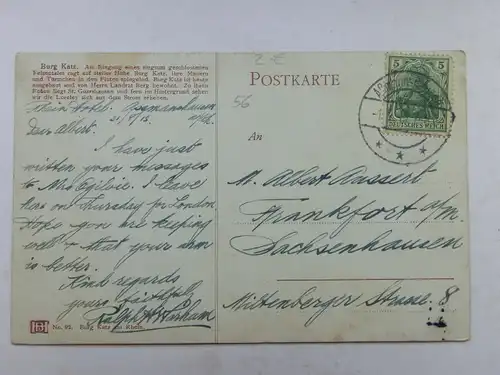 Burg Katz. Am Eingang eines ringsum geschlossenen
Felsentales ragt auf steiler Höhe Burg Katz, ihre Mauern
und Türmchen in den Fluten spiegelnd. Burg Katz ist heute
ausgebaut und von Herrn Landrat Berg bewohnt. Zu ihren
Füßen liegt St. Goarshausen und fern im Hintergrund sehen
wir die Loreley sich aus dem Strom erheben.
Rhein Hotel. Assmannshausen
31/
Dear Albert.
I have just
written your messages
to Mrs Ogilvie. I leave
here on Thursday for London
Hope you are keeping
well & that your arm
is better.
Kind regards
yours faithfully
Ralph H Warham
No. 91. Burg Katz am Rhein.
2 €
56
POSTKARTE
An
M. Albert Kassert
Frankfort a/m.
Sachsenhausen
Miltenberger Strasse. 8
5 5
DEUTSCHES REICH